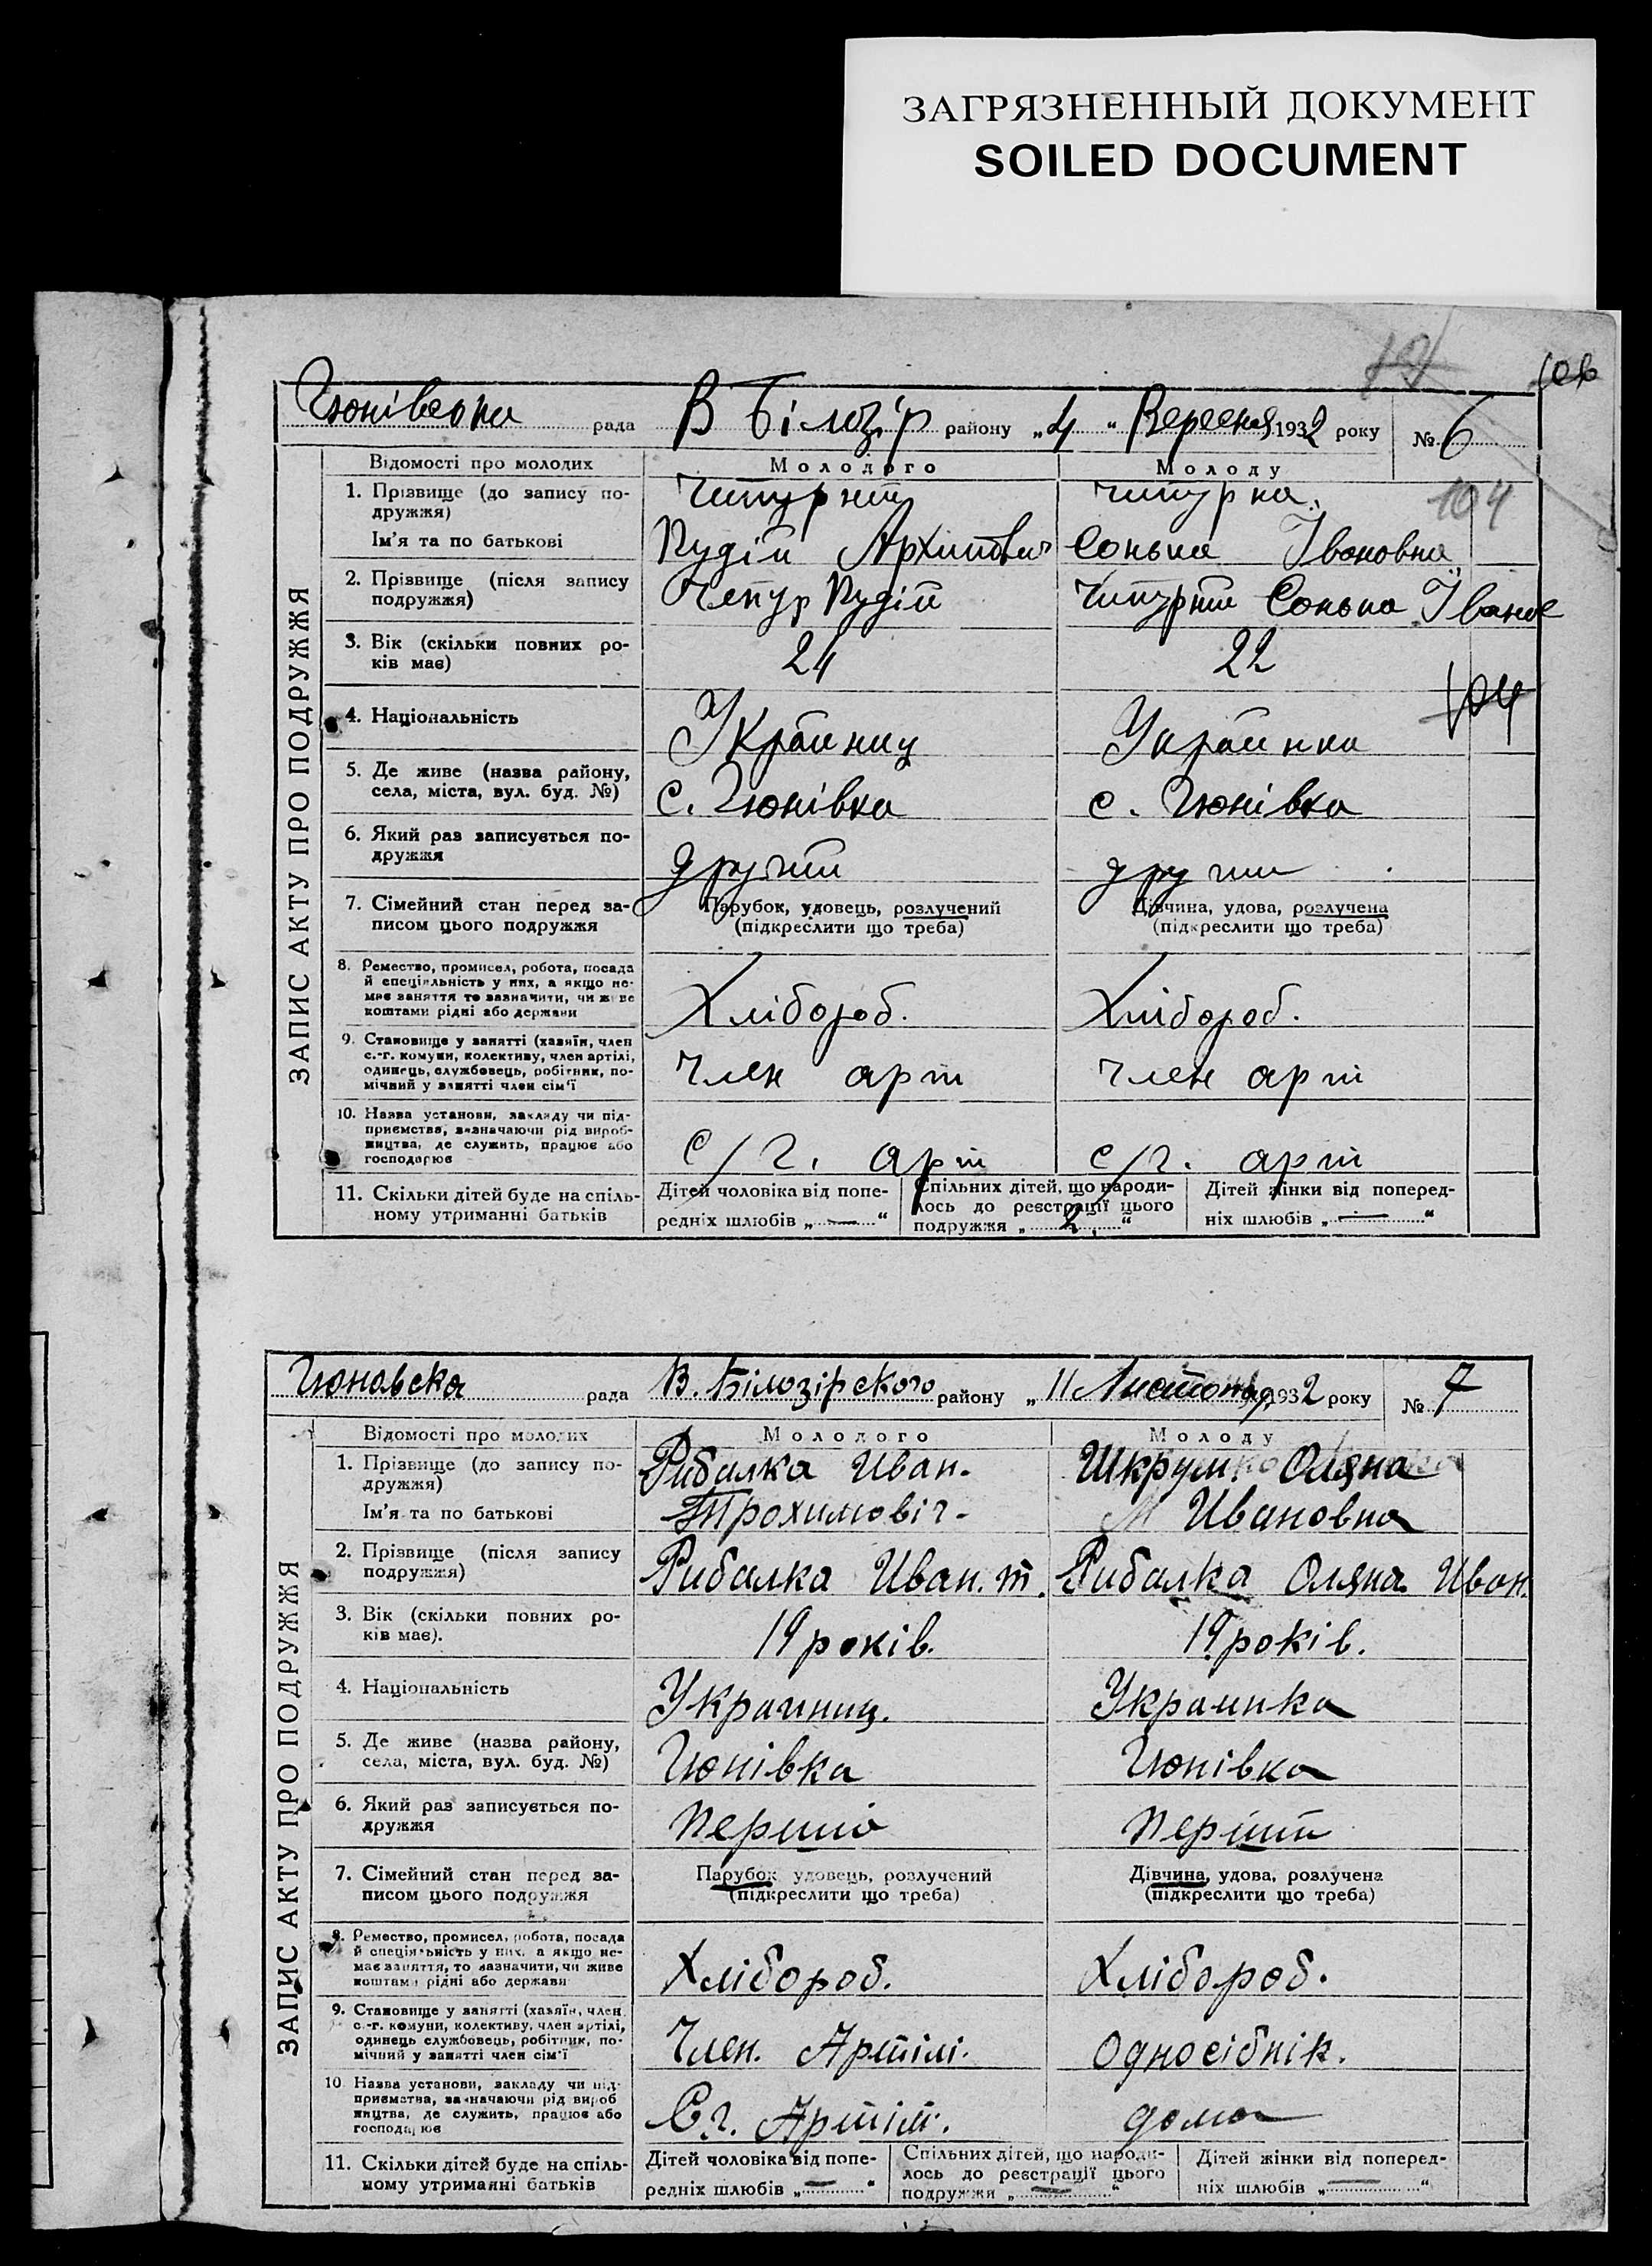 ЗАГРЯЗНЕННЫЙ ДОКУМЕНТ
SOILED DOCUMENT
104
рада В Білозір району „4“ Вересня 1932 року № 6
ЗАПИС АКТУ ПРО ПОДРУЖЖЯ
Відомості про молодих Молодого Молоду
1. Прізвище (до запису по-
дружжя)
Ім'я та по батькові Архипович Сонька Івановна
2. Прізвище (після запису
подружжя) Чепур Сонька Іванов
3. Вік (скільки повних ро-
ків має) 24 22
104
4. Національність Украиниц Украинка
5. Де живе (назва району,
села, міста, вул. буд. №) с. Чюнівка с. Чюнівка
6. Який раз записується по-
дружжя
7. Сімейний стан перед за-
писом цього подружжя
Парубок, удовець, розлучений
(підкреслити що треба)
Дівчина, удова, розлучена
(підкреслити що треба)
8. Ремество, промисел, робота, посада
й спеціяльність у них, а якщо не-
має заняття то зазначити, чи живе
коштами рідні або держави
Хлібороб. Хлібороб.
9. Становище у занятті (хазяїн, член
с.-г. комуни, колективу, член артілі,
одинець, службовець, робітник, по-
мічний у занятті член сім'ї
Член арт Член арт
10. Назва установи, закладу чи під-
приємства, зазначаючи рід вироб-
ництва, де служить, працює або
господарює
с/г. арт с/г. арт
11. Скільки дітей буде на спіль-
ному утриманні батьків
Дітей чоловіка від попе-
редніх шлюбів „—“
Спільних дітей, що народи-
лось до реєстрації цього
подружжя „2“
Дітей жінки від поперед-
ніх шлюбів „—“
Чюновска рада В. Білозірского району „11 Листопад 1932 року № 7
ЗАПИС АКТУ ПРО ПОДРУЖЖЯ
Відомості про молодих Молодого Молоду
1. Прізвище (до запису по-
дружжя) Рибалка Иван. Оляна
Ім'я та по батькові Трохимовіч. Ивановна
2. Прізвище (після запису
подружжя) Рибалка Иван. т. Рибалка Оляна Иван.
3. Вік (скільки повних ро-
ків має). 19 років. 19 років.
4. Національність Украиниц. Украинка
5. Де живе (назва району,
села, міста, вул. буд. №) Чюнівка Чюнівка
6. Який раз записується по-
дружжя
7. Сімейний стан перед за-
писом цього подружжя
Парубок, удовець, розлучений
(підкреслити що треба)
Дівчина, удова, розлучена
(підкреслити що треба)
8. Ремество, промисел, робота, посада
й спеціяльність у них, а якщо не-
має заняття, то зазначити, чи живе
коштами рідні або держави
Хлібороб. Хлібороб.
9. Становище у занятті (хазяїн, член
с.-г. комуни, колективу, член артілі,
одинець службовець, робітник, по-
мічний у занятті член сім'ї
Член. Артілі. Односібнік.
10. Назва установи, закладу чи під-
приємства, зазначаючи рід вироб
ництва, де служить, працює або
господарює
Сг. Артіл. дома
11. Скільки дітей буде на спіль-
ному утриманні батьків
Дітей чоловіка від попе-
редніх шлюбів „—“
Спільних дітей, що народи-
лось до реєстрації цього
подружжя „—“
Дітей жінки від поперед-
ніх шлюбів „—“